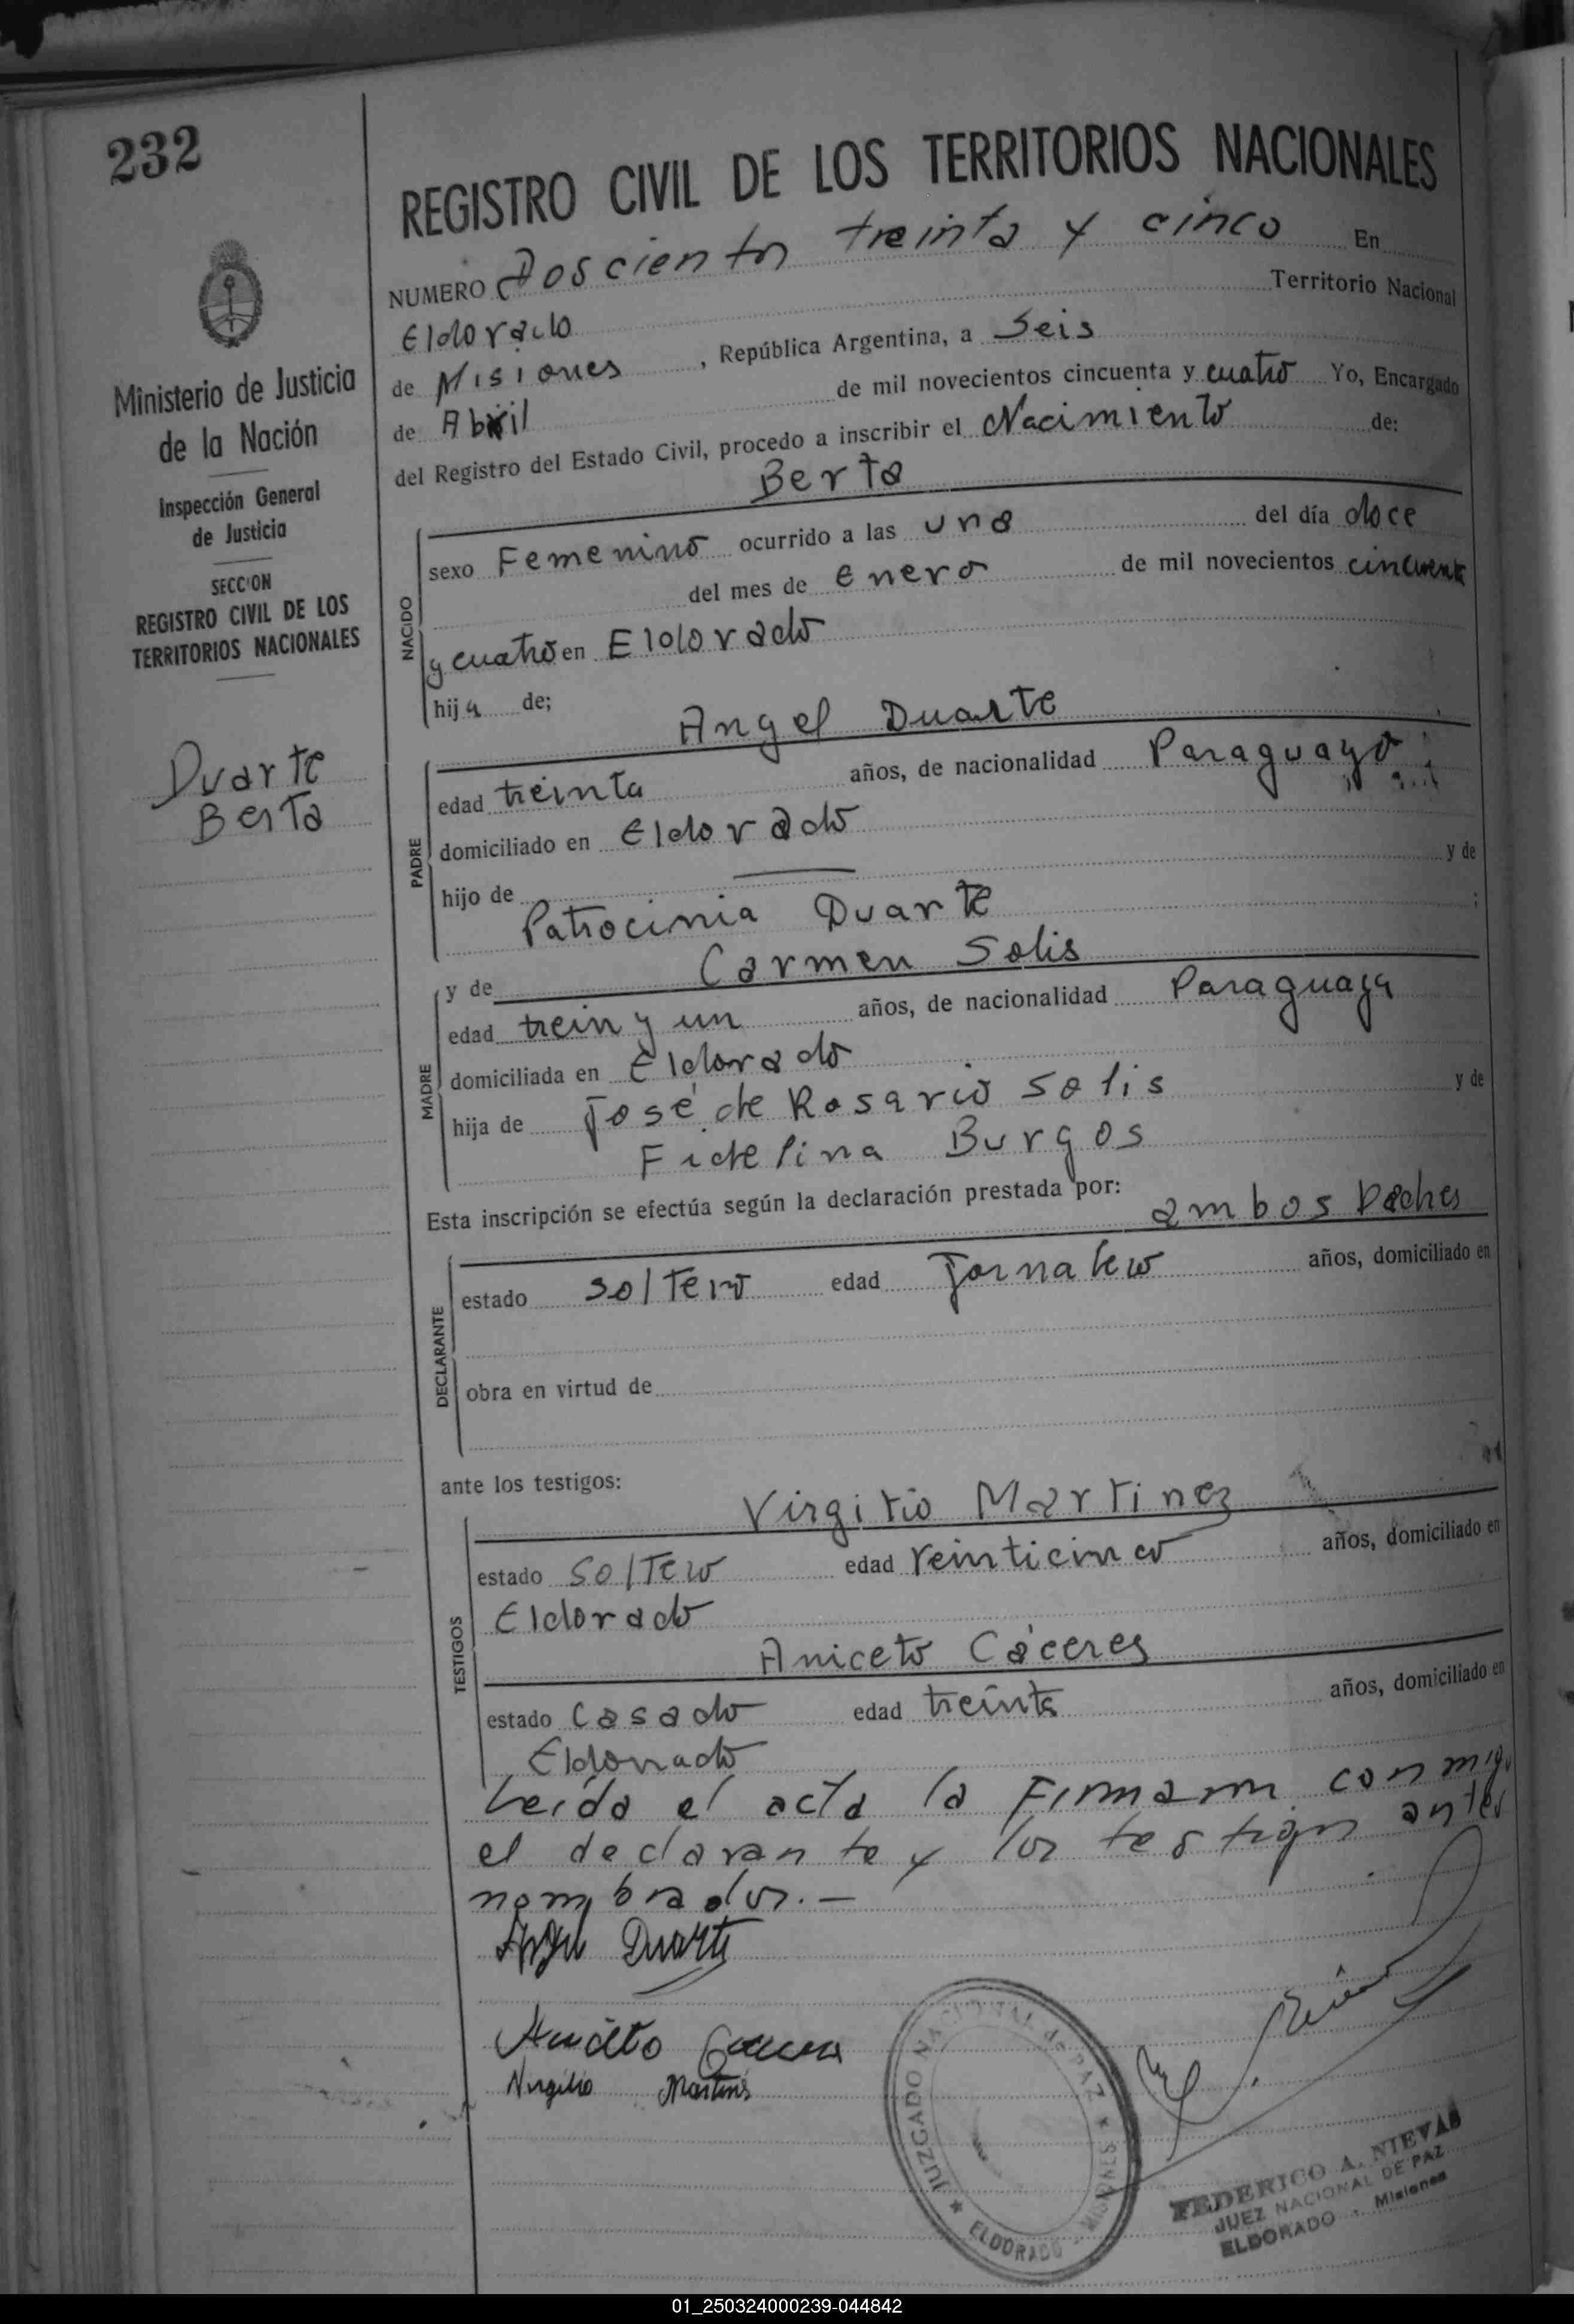 232
REGISTRO CIVIL DE LOS TERRITORIOS NACIONALES
NUMERO Dosciento treinta y cinco En
Eldorado Territorio Nacional
de Misiones , República Argentina, a Seis
de Abril de mil novecientos cincuenta y cuatro Yo, Encargado
del Registro del Estado Civil, procedo a inscribir el Nacimiento de:
Berta
Ministerio de Justicia
de la Nación
Inspección General
de Justicia
SECCION
REGISTRO CIVIL DE LOS
TERRITORIOS NACIONALES
Duarte
Berta
NACIDO
sexo Femenino ocurrido a las una del día doce
del mes de Enero de mil novecientos cincuenta
y cuatro en Eldorado
hija de;
Angel Duarte
PADRE
edad treinta años, de nacionalidad Paraguayo
domiciliado en Eldorado
hijo de — y de
Patrocinia Duarte ;
y de Carmen Solis
MADRE
edad trein y un años, de nacionalidad Paraguaya
domiciliada en Eldorado
hija de José de Rosario Solis y de
Fidelina Burgos
Esta inscripción se efectúa según la declaración prestada por:
ambos Padres
DECLARANTE
estado soltero edad Jornalero años, domiciliado en
obra en virtud de
ante los testigos:
Virgilio Martinez
TESTIGOS
estado soltero edad veinticinco años, domiciliado en
Eldorado
Aniceto Cáceres
estado casado edad treinta años, domiciliado en
Eldorado
Leída el acta la Firmam conmigo
el declarante y los testigos antes
nombrados.—
Angel Duarte
Aniceto Caceres
Virgilio Martines
JUZGADO NACIONAL de PAZ ★ MISIONES - ELDORADO ★
FEDERICO A. NIEVAS
JUEZ NACIONAL DE PAZ
ELDORADO - Misiones
01_250324000239-044842